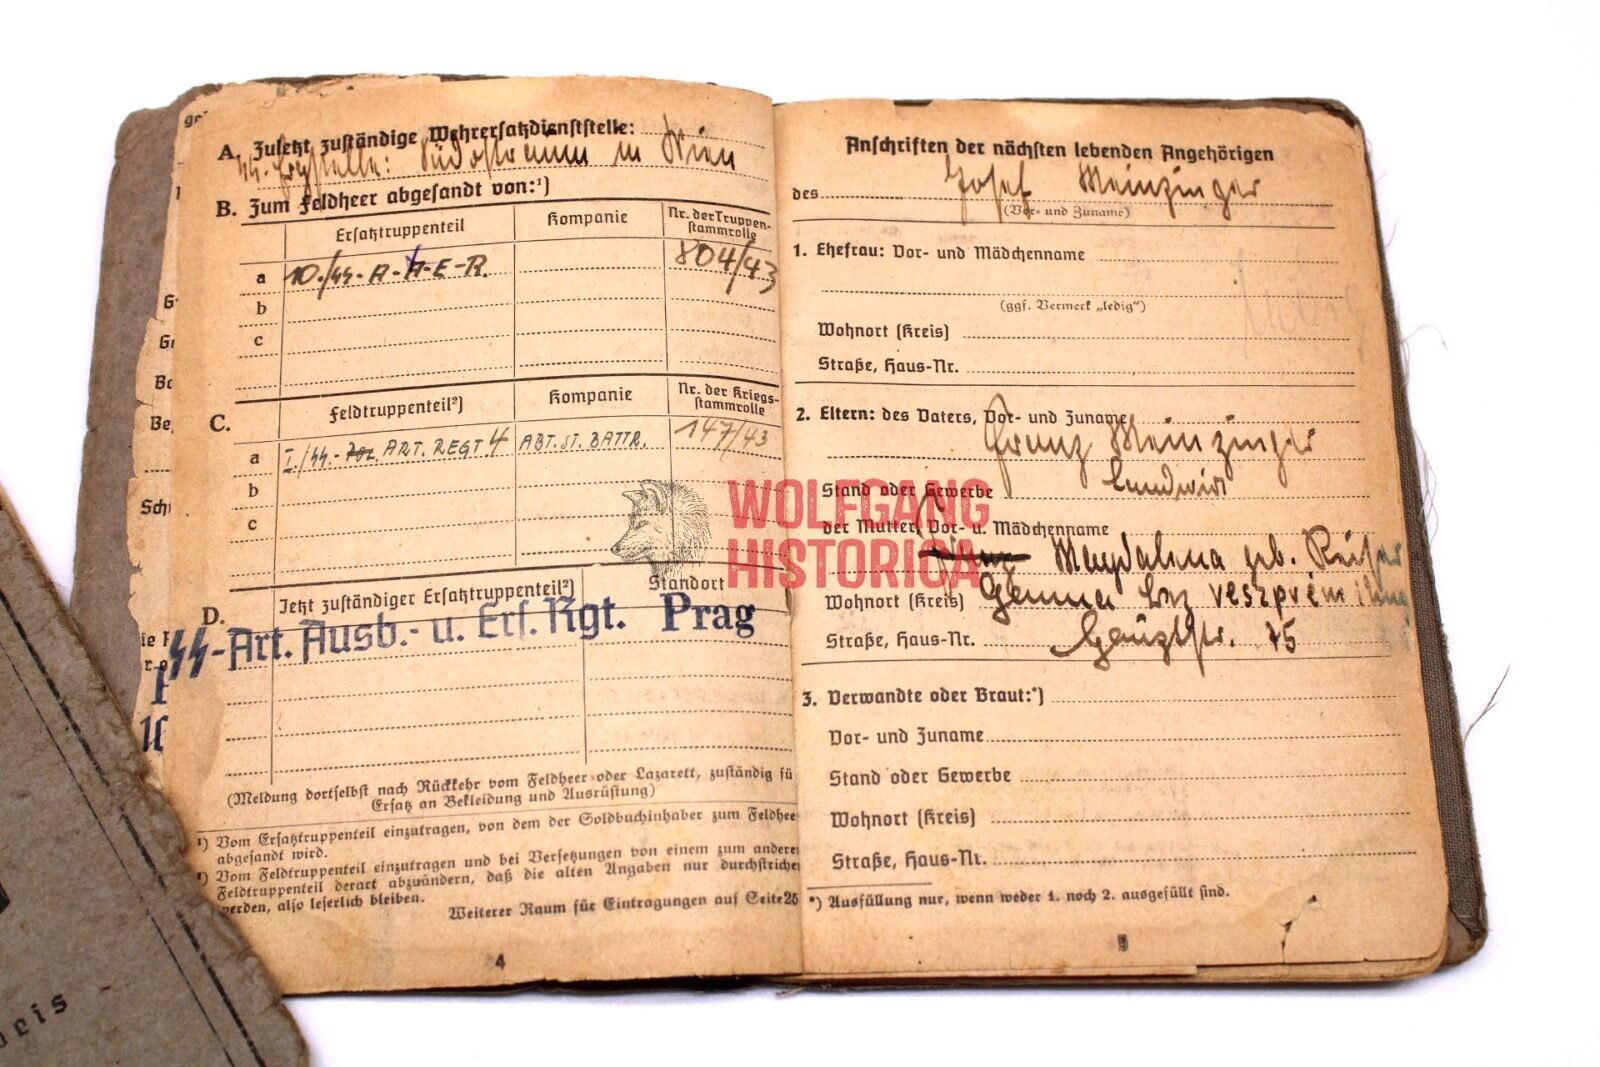 ge
A. Zuletzt zuständige Wehrersatzdienststelle:
SS-Erg.stelle: Südostraum in Wien
B. Zum Feldheer abgesandt von:¹)
Ersatztruppenteil Kompanie Nr. der Truppen-
stammrolle
a 10./SS-A-A-E-R. 804/43
b
c
C. Feldtruppenteil²) Kompanie Nr. der Kriegs-
stammrolle
a I./SS-Pol. ART. REGT 4 ABT. ST. BATTR. 147/43
b
c
D. Jetzt zuständiger Ersatztruppenteil²) Standort
SS-Art. Ausb.- u. Ers. Rgt. Prag
(Meldung dortselbst nach Rückkehr vom Feldheer oder Lazarett, zuständig fü
Ersatz an Bekleidung und Ausrüstung)
¹) Vom Ersatztruppenteil einzutragen, von dem der Soldbuchinhaber zum Feldhee
abgesandt wird.
²) Vom Feldtruppenteil einzutragen und bei Versetzungen von einem zum andere
Feldtruppenteil derart abzuändern, daß die alten Angaben nur durchstriche
werden, also leserlich bleiben.
Weiterer Raum für Eintragungen auf Seite 25
4
Anschriften der nächsten lebenden Angehörigen
des Josef Meinzinger
(Vor- und Zuname)
1. Ehefrau: Vor- und Mädchenname
(ggf. Vermerk „ledig“)
Wohnort (Kreis)
Straße, Haus-Nr.
2. Eltern: des Vaters, Vor- und Zuname
Franz Meinzinger
Stand oder Gewerbe Landwirt
der Mutter, Vor- u. Mädchenname
Magdalena geb.
Wohnort (Kreis) Veszprém
Straße, Haus-Nr. Hauptstr. 75
3. Verwandte oder Braut:*)
Vor- und Zuname
Stand oder Gewerbe
Wohnort (Kreis)
Straße, Haus-Nr.
*) Ausfüllung nur, wenn weder 1. noch 2. ausgefüllt sind.
5
WOLFGANG
HISTORICA
weis